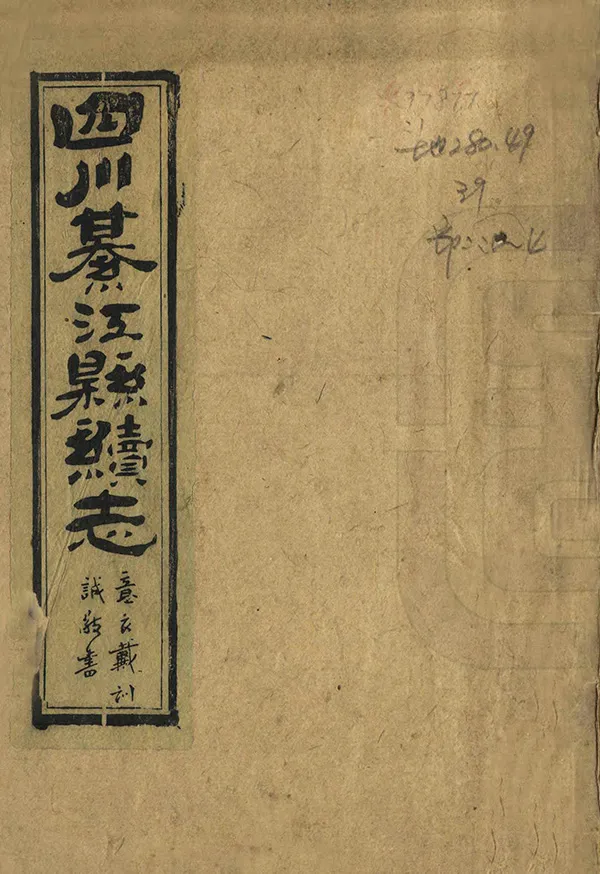 四川綦江縣續志
意云戴訓
誠敬書
地280.49
39